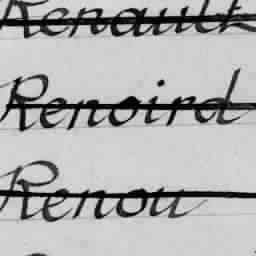 Renault
Renoird
Renou